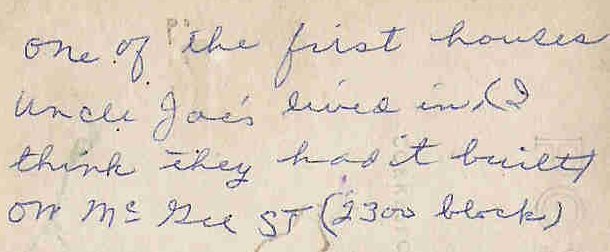 one of the first houses
Uncle Joe's lived in, (I
think they had it built)
on Mc Gee ST (2300 block)